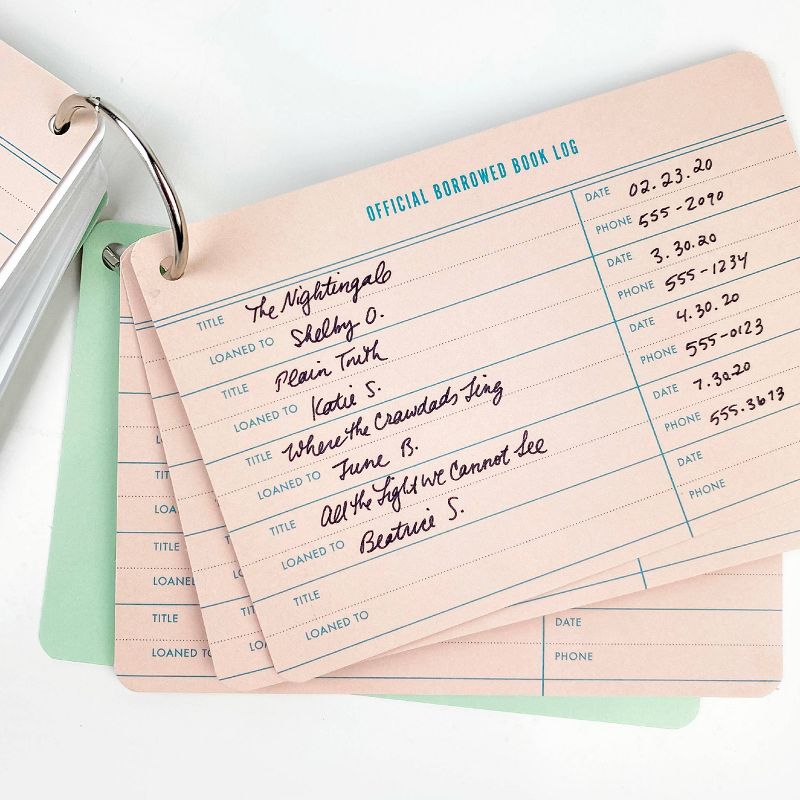 OFFICIAL BORROWED BOOK LOG
TITLE The Nightingale DATE 02.23.20
LOANED TO Shelby O. PHONE 555-2090
TITLE Plain Truth DATE 3.30.20
LOANED TO Katie S. PHONE 555-1234
TITLE Where the Crawdads Sing DATE 4.30.20
LOANED TO June B. PHONE 555-0123
TITLE All the Light We Cannot See DATE 7.30.20
LOANED TO Beatrice S. PHONE 555.3673
TITLE DATE
LOANED TO PHONE
LO
TIT TI
LOA LO
TITLE TI
LOANED LO
TITLE TI DATE
LOANED TO LO PHONE